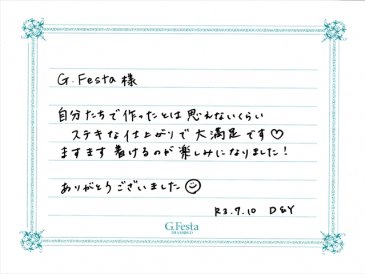 G.Festa 様
自分たちで作ったとは思えないくらい
ステキな仕上がりで大満足です♡
ますます着けるのが楽しみになりました!
ありがとうございました☺
R3.9.10 D&Y
G.Festa